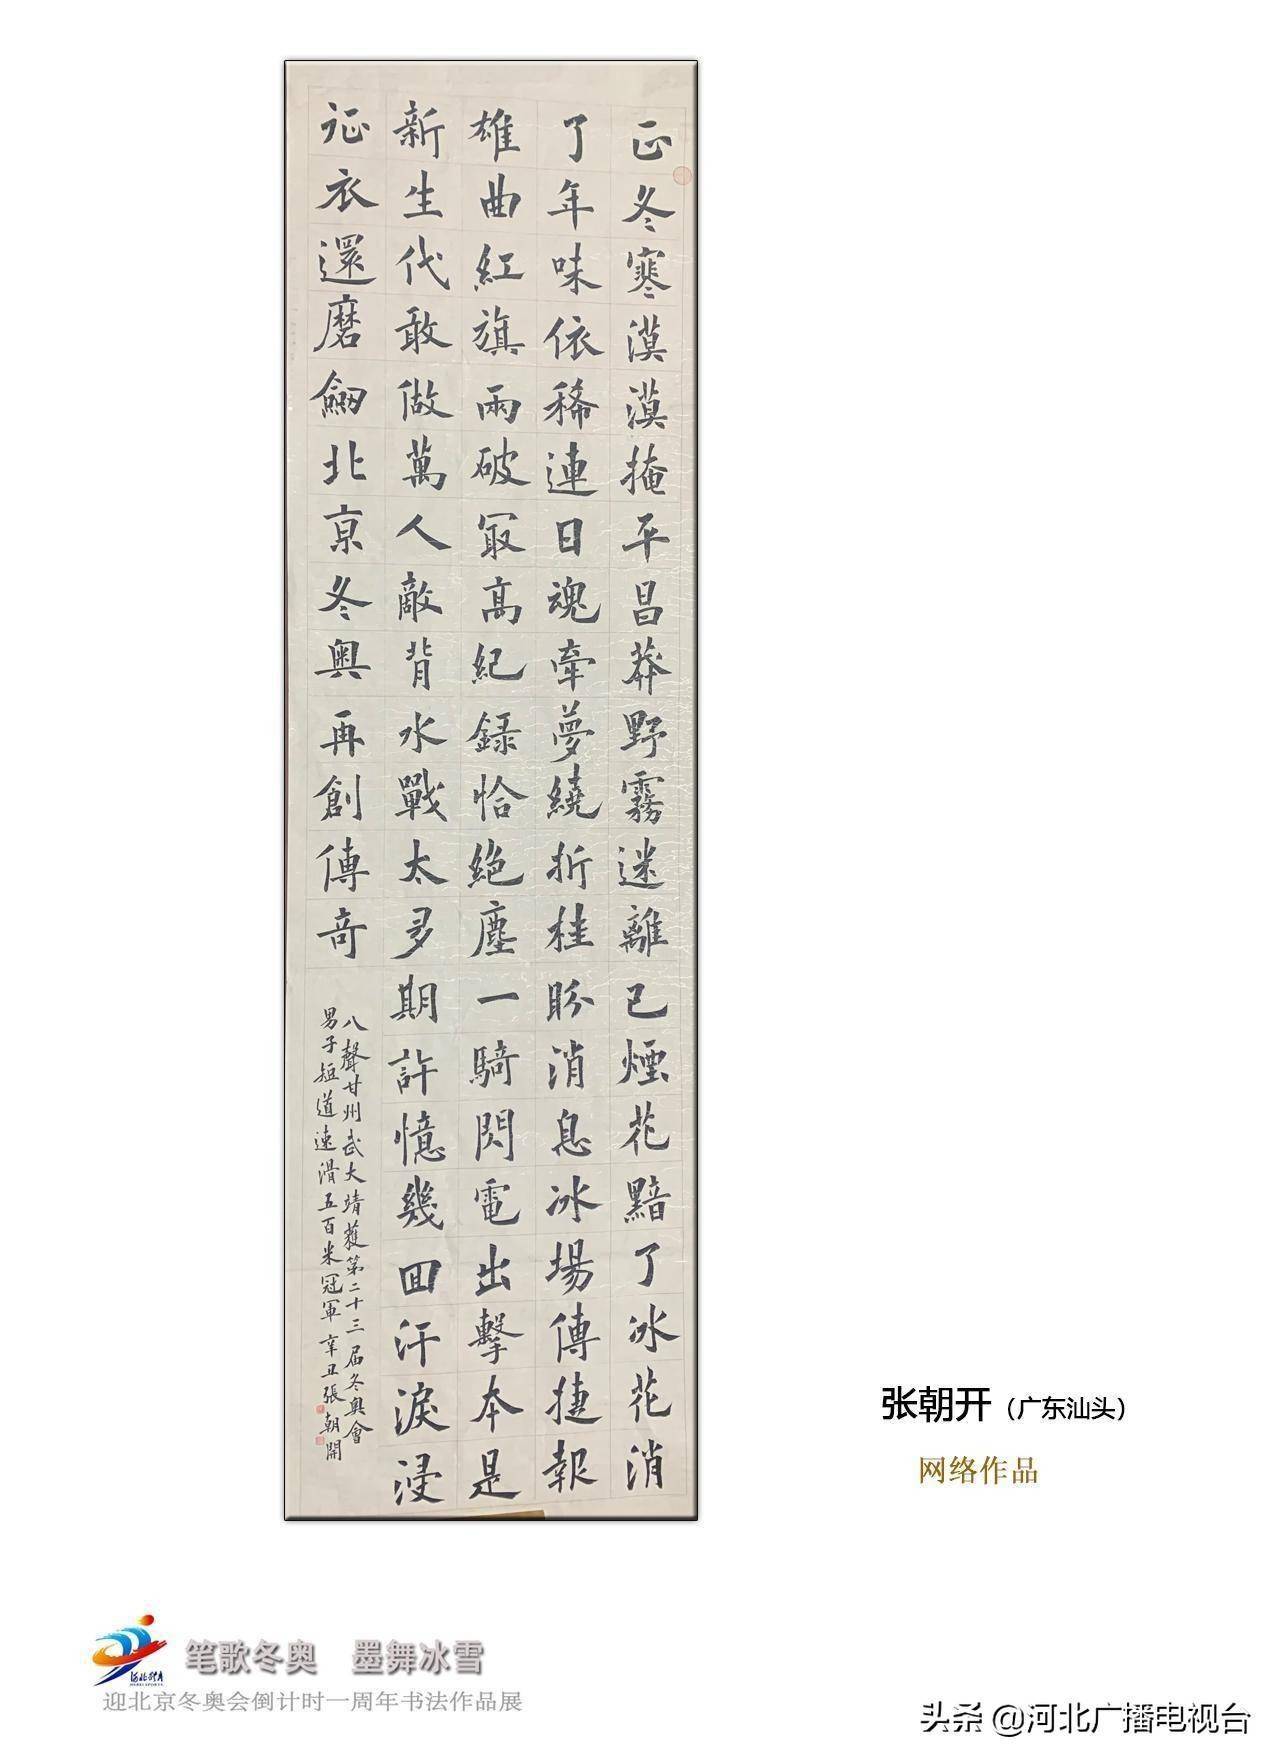 正冬寒漠漠掩平昌莽野霧迷離已煙花黯了冰花消
了年味依稀連日魂牽夢繞折桂盼消息冰場傳捷報
雄曲紅旗兩破冣高紀錄恰絕塵一騎閃電出擊本是
新生代敢做萬人敵背水戰太多期許憶幾回汗淚浸
征衣還磨劒北京冬奧再創傳奇
八聲甘州武大靖獲第二十三届冬奧會
男子短道速滑五百米冠軍辛丑張朝開
张朝开（广东汕头）
网络作品
河北体育
HEBEI SPORTS
笔歌冬奥 墨舞冰雪
迎北京冬奥会倒计时一周年书法作品展
头条 @河北广播电视台